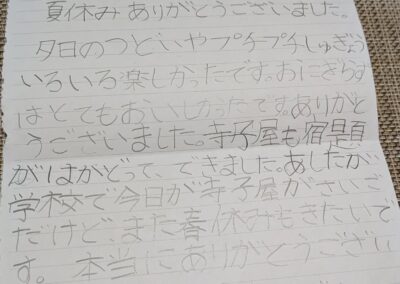 夏休みありがとうございました。
夕日のつどいやプチプチしゅぎょう
いろいろ楽しかったです。おにぎらず
はとてもおいしかったです。ありがと
うございました。寺子屋も宿題
がはかどって、できました。あしたが
学校で今日が寺子屋がさいご
だけど、また春休みもきたいで
す。 本当にありがとうござい